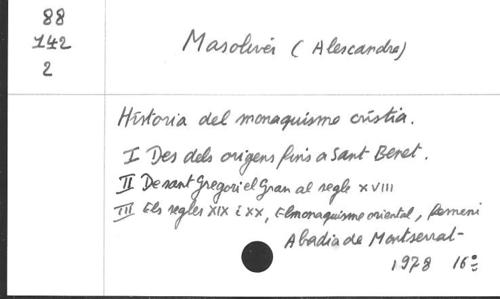 88
142
2
Masoliver (Alexandre)
Historia del monaquisme cristia.
I Des dels origens fins a Sant Benet.
II De sant Gregori el Gran al segle XVIII
III Els segles XIX i XX, El monaquisme oriental, femeni
Abadia de Montserrat-
1978 16º